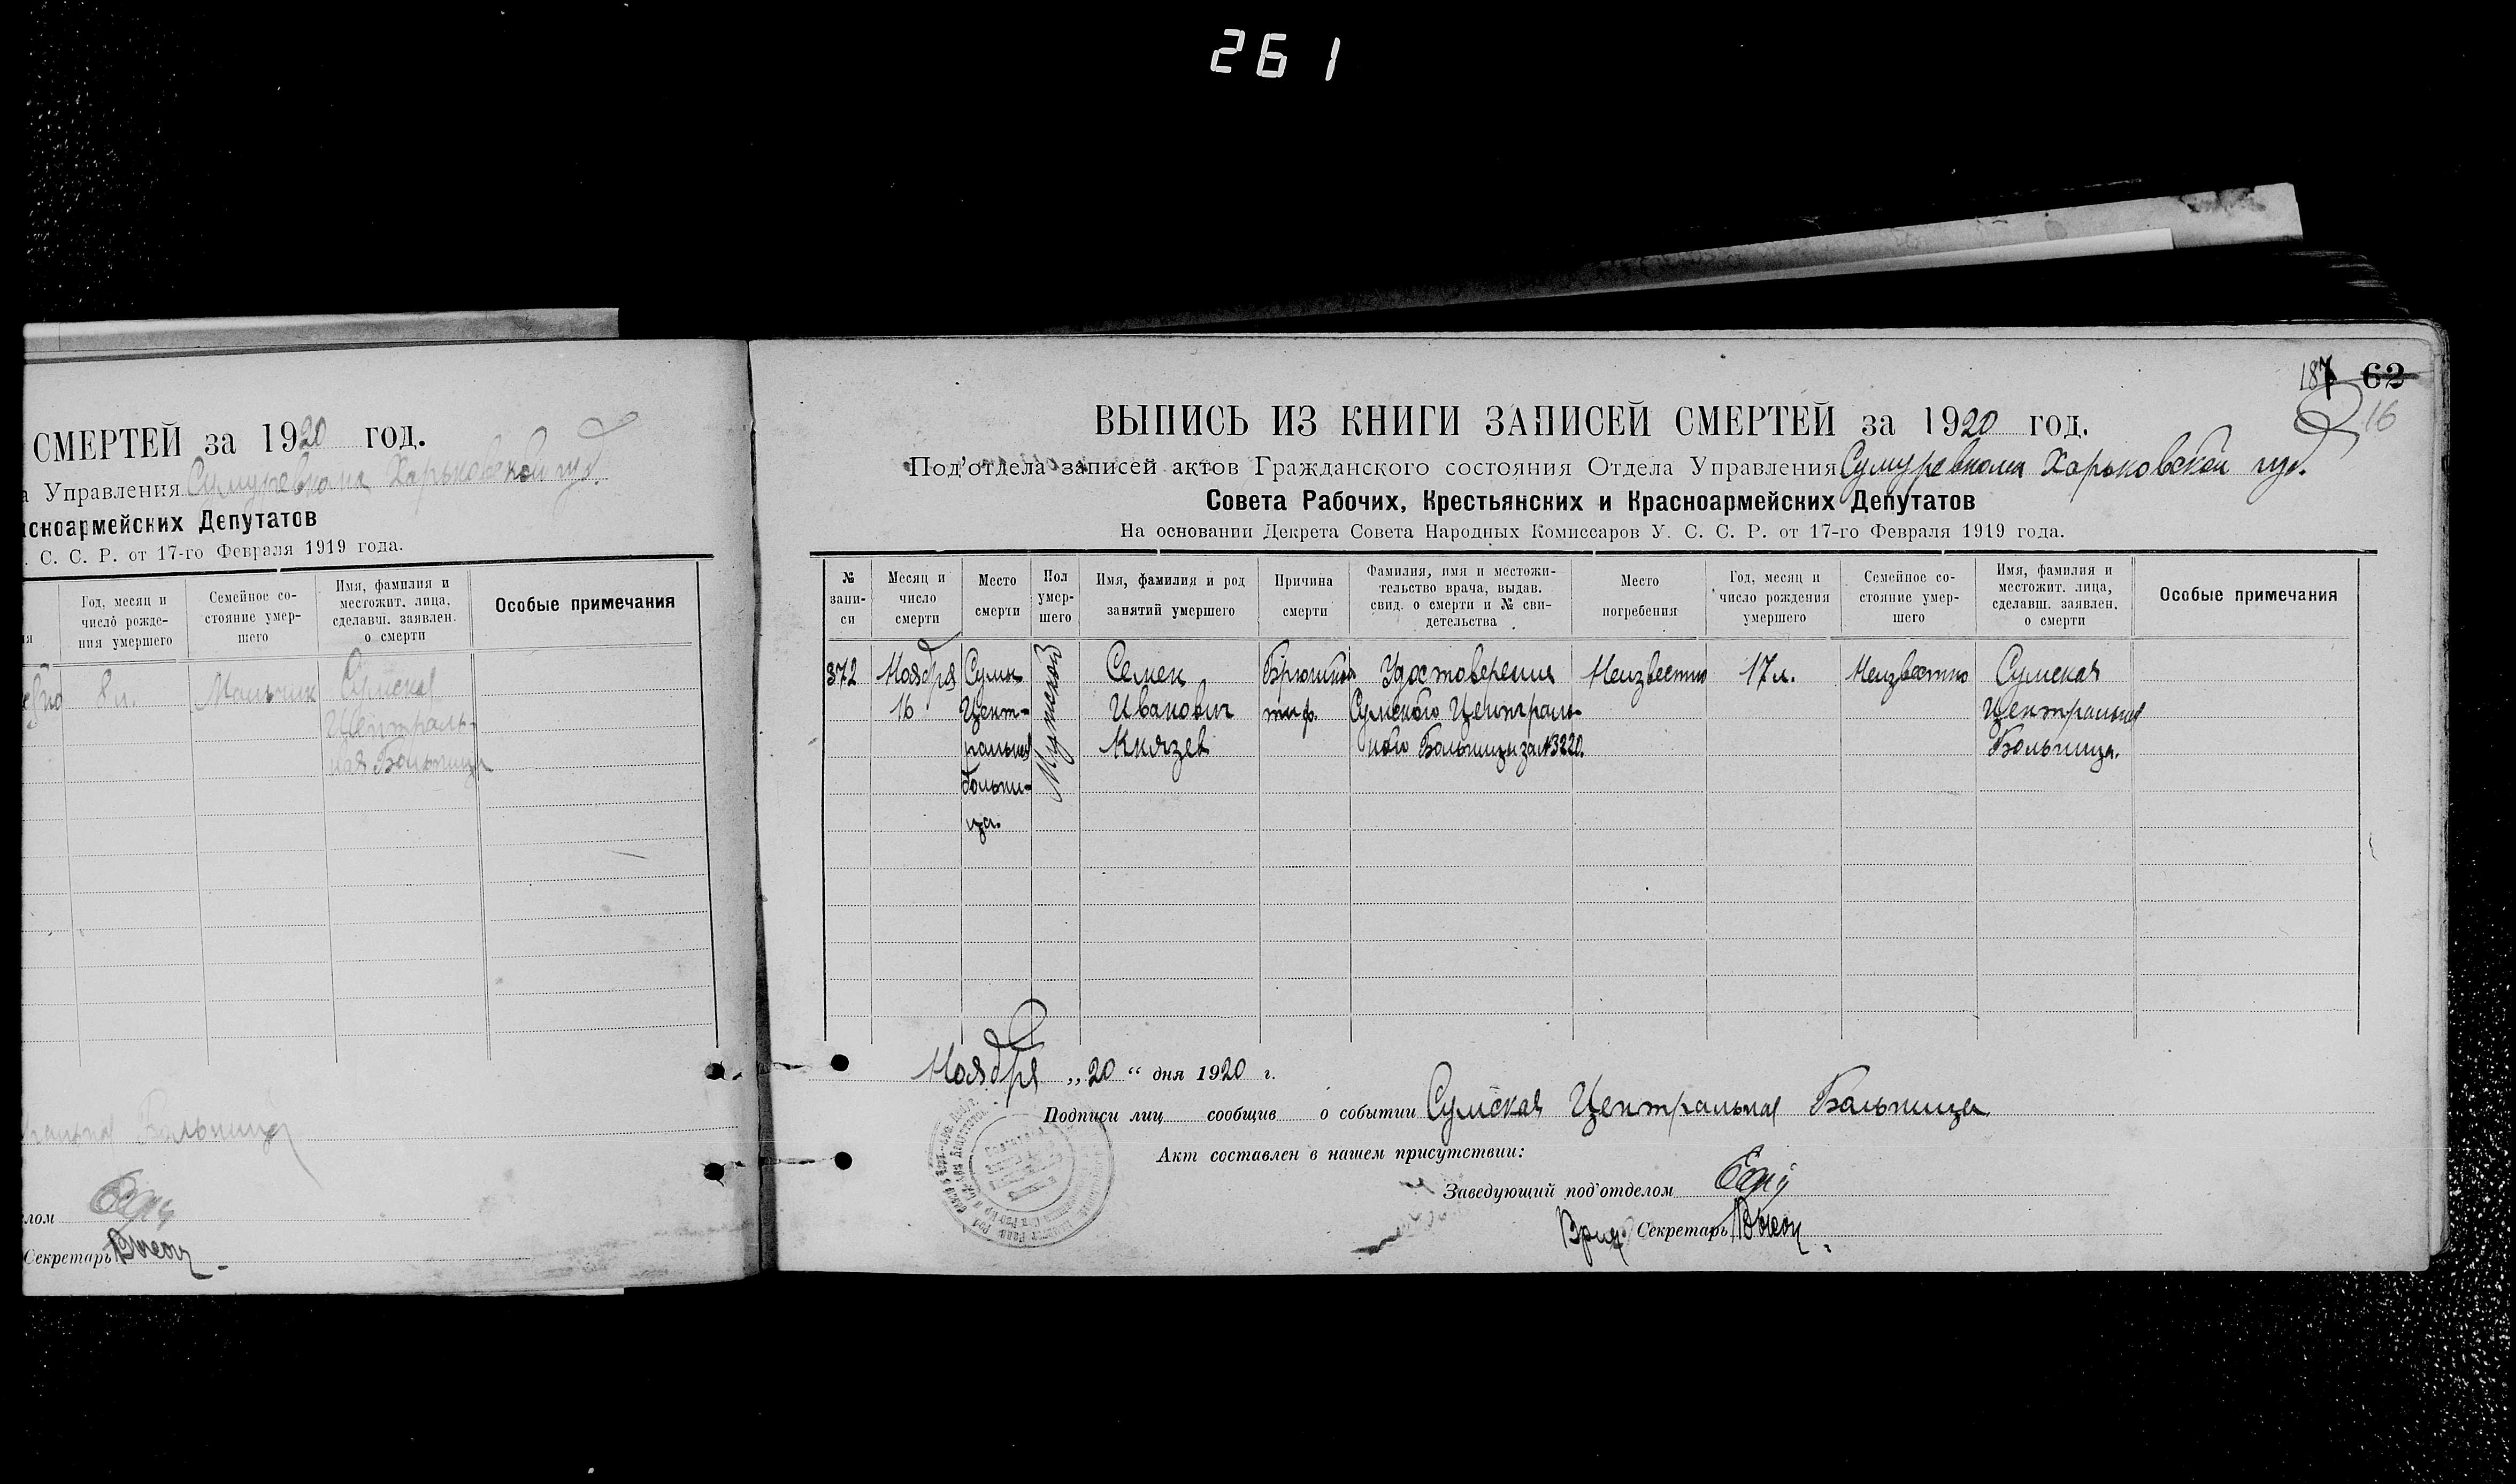 261
СМЕРТЕЙ за 1920 год.
Управления Сумуревкома Харьковской губ.
Красноармейских Депутатов
С. С. Р. от 17-го Февраля 1919 года.
Год, месяц и
число рожде-
ния умершего
Семейное со-
стояние умер-
шего
Имя, фамилия и
местожит. лица,
сделавш. заявлен.
о смерти
Особые примечания
8 л.
Мальчик
Сумская
Централь-
ная Больница
Больница
Секретарь
187 62
16
ВЫПИСЬ ИЗ КНИГИ ЗАПИСЕЙ СМЕРТЕЙ за 1920 год.
Под'отдела записей актов Гражданского состояния Отдела Управления Сумуревкома Харьковской губ.
Совета Рабочих, Крестьянских и Красноармейских Депутатов
На основании Декрета Совета Народных Комиссаров У. С. С. Р. от 17-го Февраля 1919 года.
№
запи-
си
Месяц и
число
смерти
Место
смерти
Пол
умер-
шего
Имя, фамилия и род
занятий умершего
Причина
смерти
Фамилия, имя и местожи-
тельство врача, выдав.
свид. о смерти и № сви-
детельства
Место
погребения
Год, месяц и
число рождения
умершего
Семейное со-
стояние умер-
шего
Имя, фамилия и
местожит. лица,
сделавш. заявлен.
о смерти
Особые примечания
372
Ноября
16
Сумы
Цент-
ральная
больни-
ца.
Мужской
Семен
Иванович
Князев
Брюшной
тиф.
Удостоверение
Сумского Централь-
ного Больницы за №3220.
Неизвестно
17 л.
Неизвестно
Сумская
Центральная
Больница.
Ноября „20“ дня 1920 г.
Подписи лиц сообщив о событии Сумская Центральная Больница.
Акт составлен в нашем присутствии:
Заведующий под'отделом
Врид. Секретарь